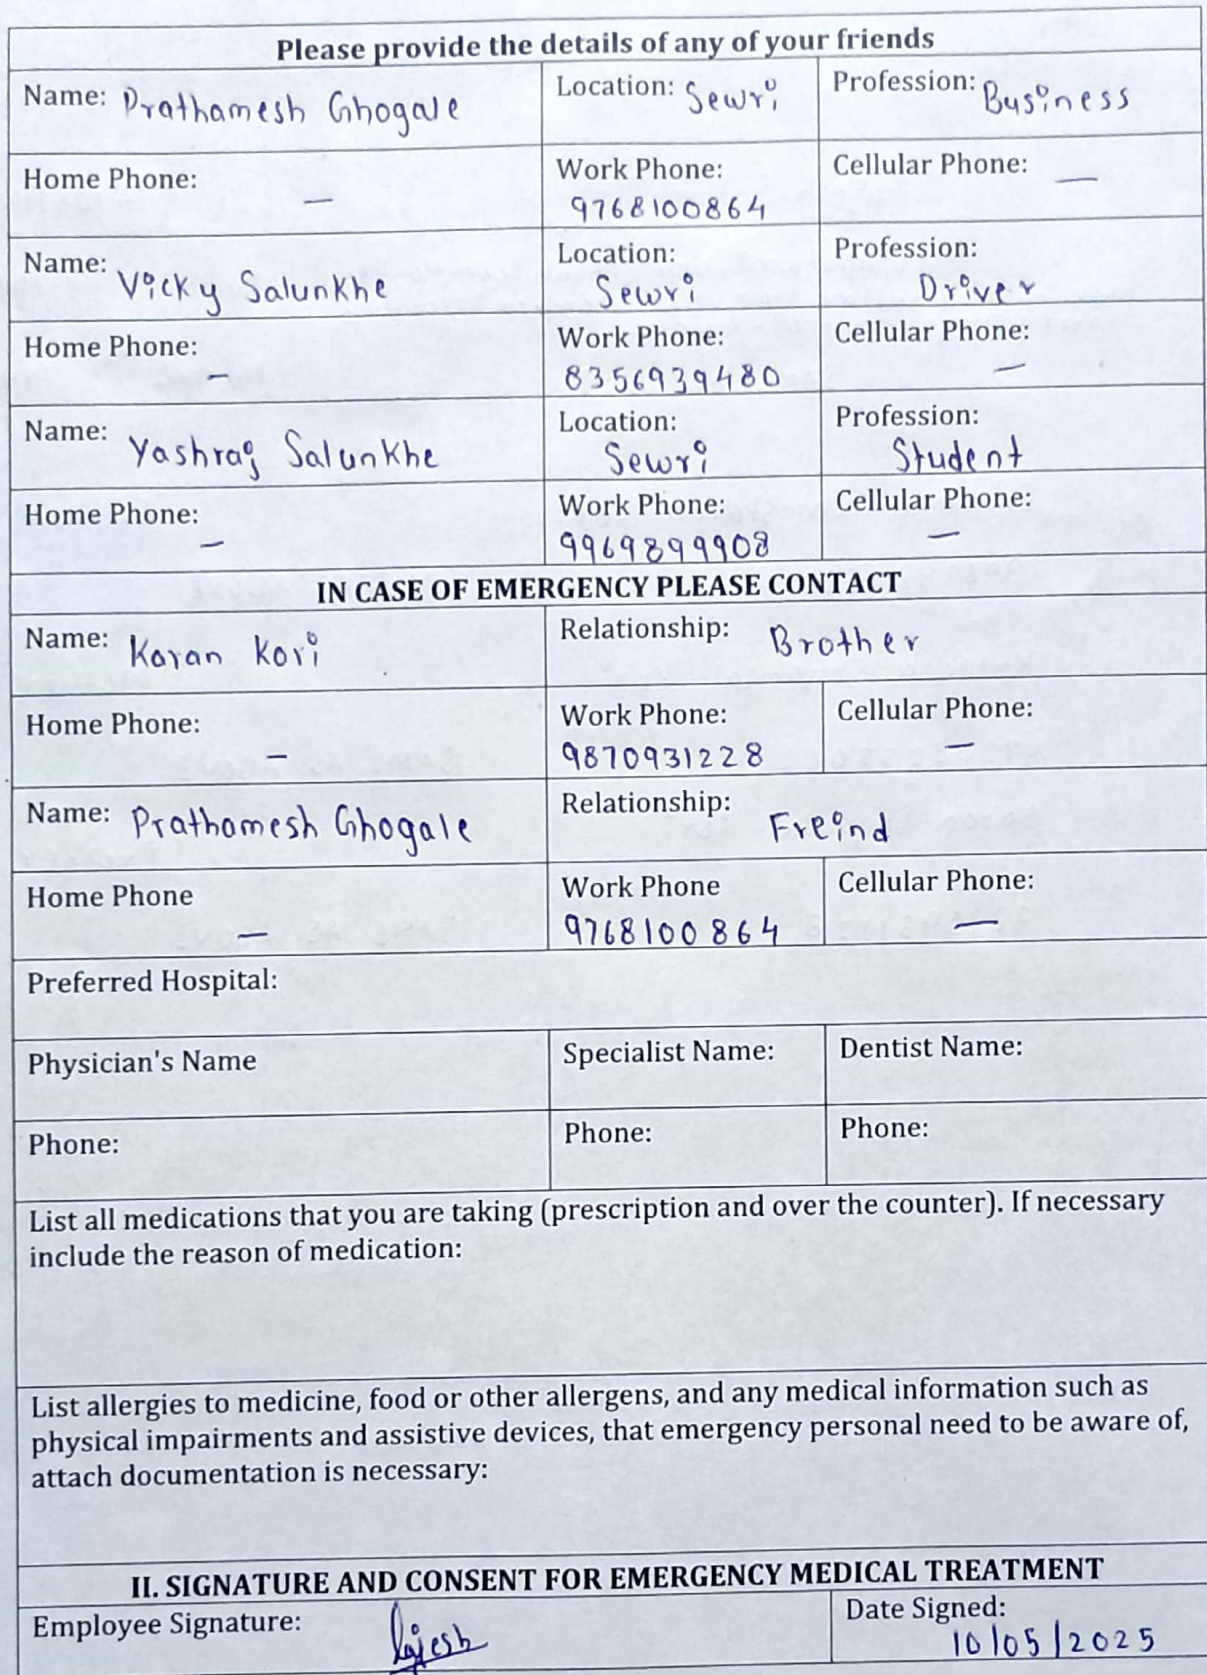 Please provide the details of any of your friends
Name: Prathamesh Ghogale Location: Sewri Profession: Business
Home Phone: — Work Phone: 9768100864 Cellular Phone: —
Name: Vicky Salunkhe Location: Sewri Profession: Driver
Home Phone: — Work Phone: 8356939480 Cellular Phone: —
Name: Yashraj Salunkhe Location: Sewri Profession: Student
Home Phone: — Work Phone: 9969899908 Cellular Phone: —
IN CASE OF EMERGENCY PLEASE CONTACT
Name: Karan Kori Relationship: Brother
Home Phone: — Work Phone: 9870931228 Cellular Phone: —
Name: Prathamesh Ghogale Relationship: Freind
Home Phone — Work Phone 9768100864 Cellular Phone: —
Preferred Hospital:
Physician's Name Specialist Name: Dentist Name:
Phone: Phone: Phone:
List all medications that you are taking (prescription and over the counter). If necessary
include the reason of medication:
List allergies to medicine, food or other allergens, and any medical information such as
physical impairments and assistive devices, that emergency personal need to be aware of,
attach documentation is necessary:
II. SIGNATURE AND CONSENT FOR EMERGENCY MEDICAL TREATMENT
Employee Signature: Rajesh Date Signed: 10/05/2025